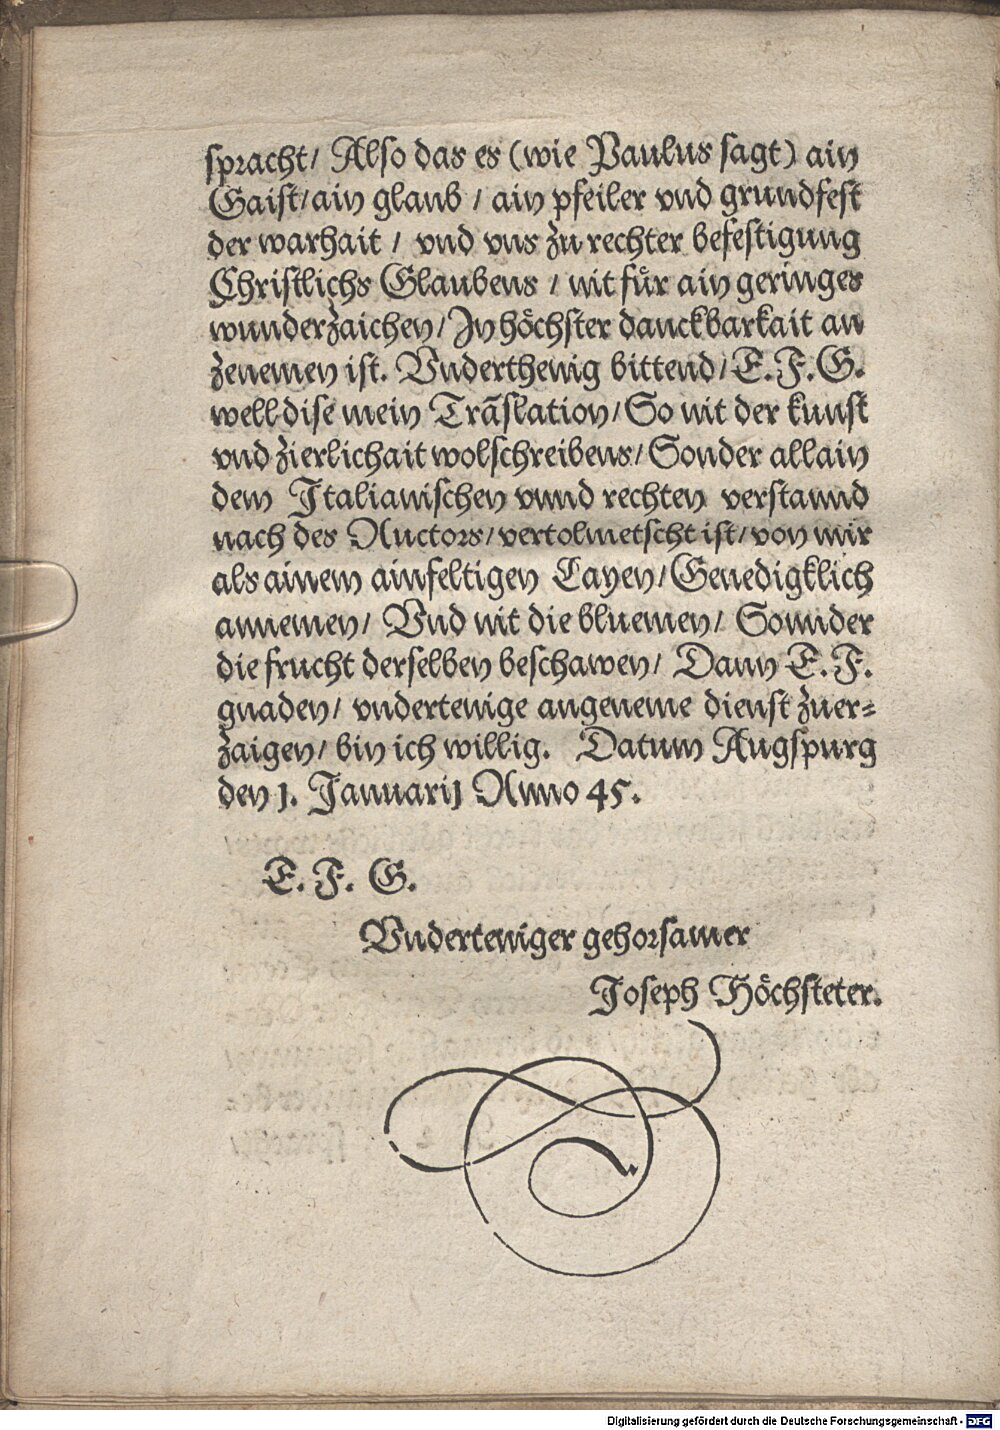 spracht/ Also das es (wie Paulus sagt) ain
Gaist/ ain glaub / ain pfeiler vnd grundfest
der warhait / vnd vns zu rechter befestigung
Christlichs Glaubens / nit für ain geringes
wunderzaichen/ In höchster danckbarkait an
zenemen ist. Vnderthenig bittend/ E. F. G.
well dise mein Trãslation/ So nit der kunst
vnd zierlichait wolschreibens/ Sonder allain
dem Italianischen vnnd rechten verstannd
nach des Auctors/ vertolmetscht ist/ von mir
als ainem ainfeltigen Layen/ Genedigklich
annemen/ Vnd nit die bluemen/ Sonnder
die frucht derselben beschawen/ Dann E. F.
gnaden/ vndertenige angeneme dienst zuer⸗
zaigen/ bin ich willig. Datum Augspurg
den 1. Januarij Anno 45.
E. F. G.
Vnderteniger gehorsamer
Joseph Höchsteter.
Digitalisierung gefördert durch die Deutsche Forschungsgemeinschaft - DFG